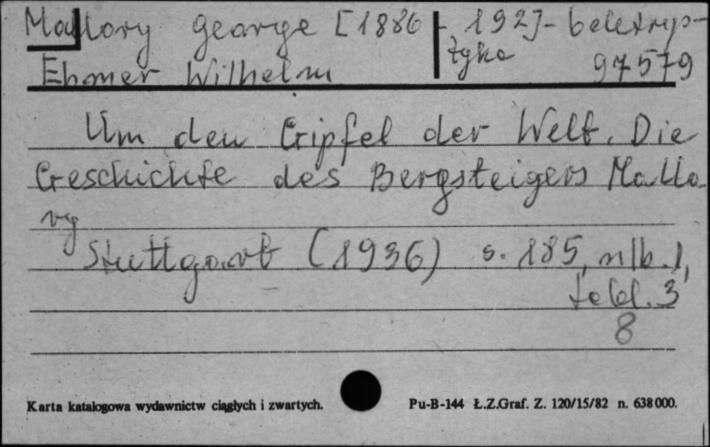 Mallory George [1886 - 192]- beletrys-
Ehmer Wilhelm tyka 97579
Um den Gipfel der Welt. Die
Geschichte des Bergsteigers Mallo
ry
Stuttgart (1936) s. 185, nlb. 1,
tabl. 3
8
Karta katalogowa wydawnictw ciągłych i zwartych. Pu-B-144 Ł.Z.Graf. Z. 120/15/82 n. 638000.